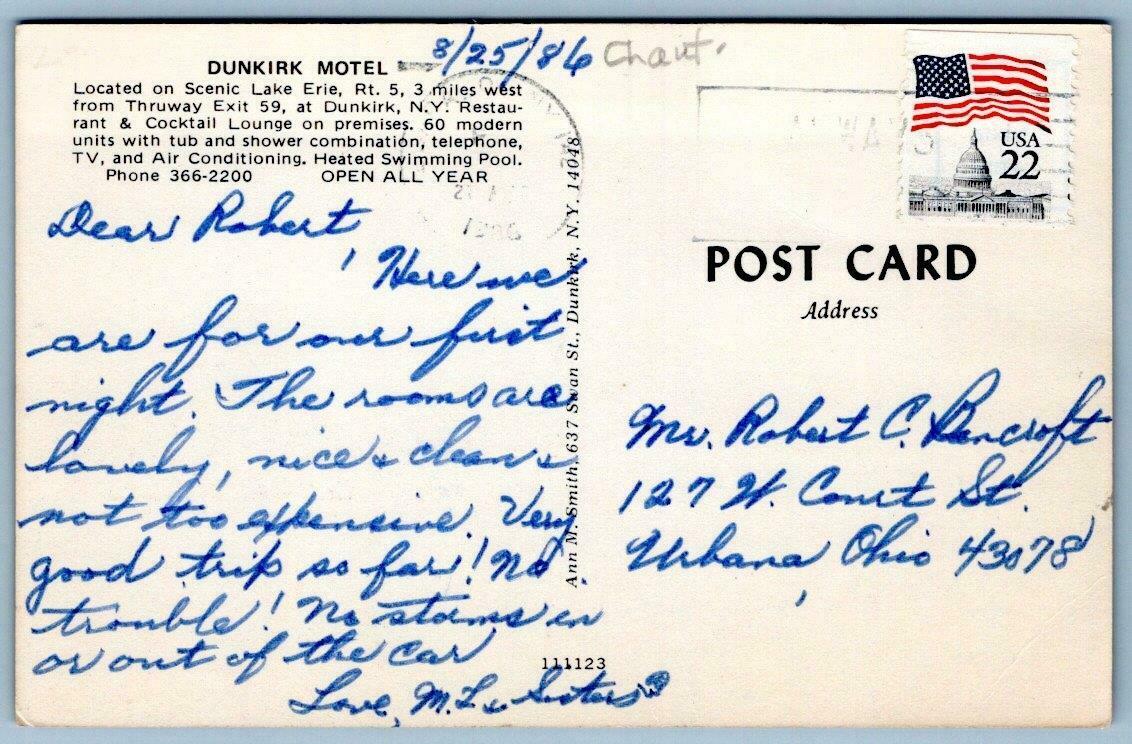 8/25/86 Chaut.
DUNKIRK MOTEL
Located on Scenic Lake Erie, Rt. 5, 3 miles west
from Thruway Exit 59, at Dunkirk, N.Y. Restau-
rant & Cocktail Lounge on premises. 60 modern
units with tub and shower combination, telephone,
TV, and Air Conditioning. Heated Swimming Pool.
Phone 366-2200 OPEN ALL YEAR
Dear Robert,
Here we
are for our first
night. The rooms are
lovely, nice & clean &
not too expensive. Very
good trip so far! No
trouble! No storms in
or out of the car
Love, M.L. & Sisters
Ann M. Smith, 637 Swan St., Dunkirk, N.Y. 14048
111123
USA
22
POST CARD
Address
Mr. Robert C. Bencroft
127 W. Court St.
Urbana, Ohio 43078